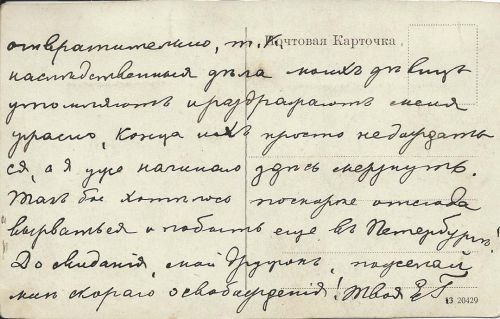 отвратительно, т. к.
Почтовая Карточка
наслѣдственныя дѣла моихъ дѣвицъ
утомляютъ и раздражаютъ меня
ужасно, конца ихъ просто не дождать
ся, а я ужо начинаю здѣсь мерзнуть.
Такъ бы хотѣлось поскорѣе отсюда
вырваться и побыть еще въ Петербургѣ!
До свиданія, мой дружокъ, пожелай
мнѣ скораго освобожденія! Твоя ЕГ
13 20429